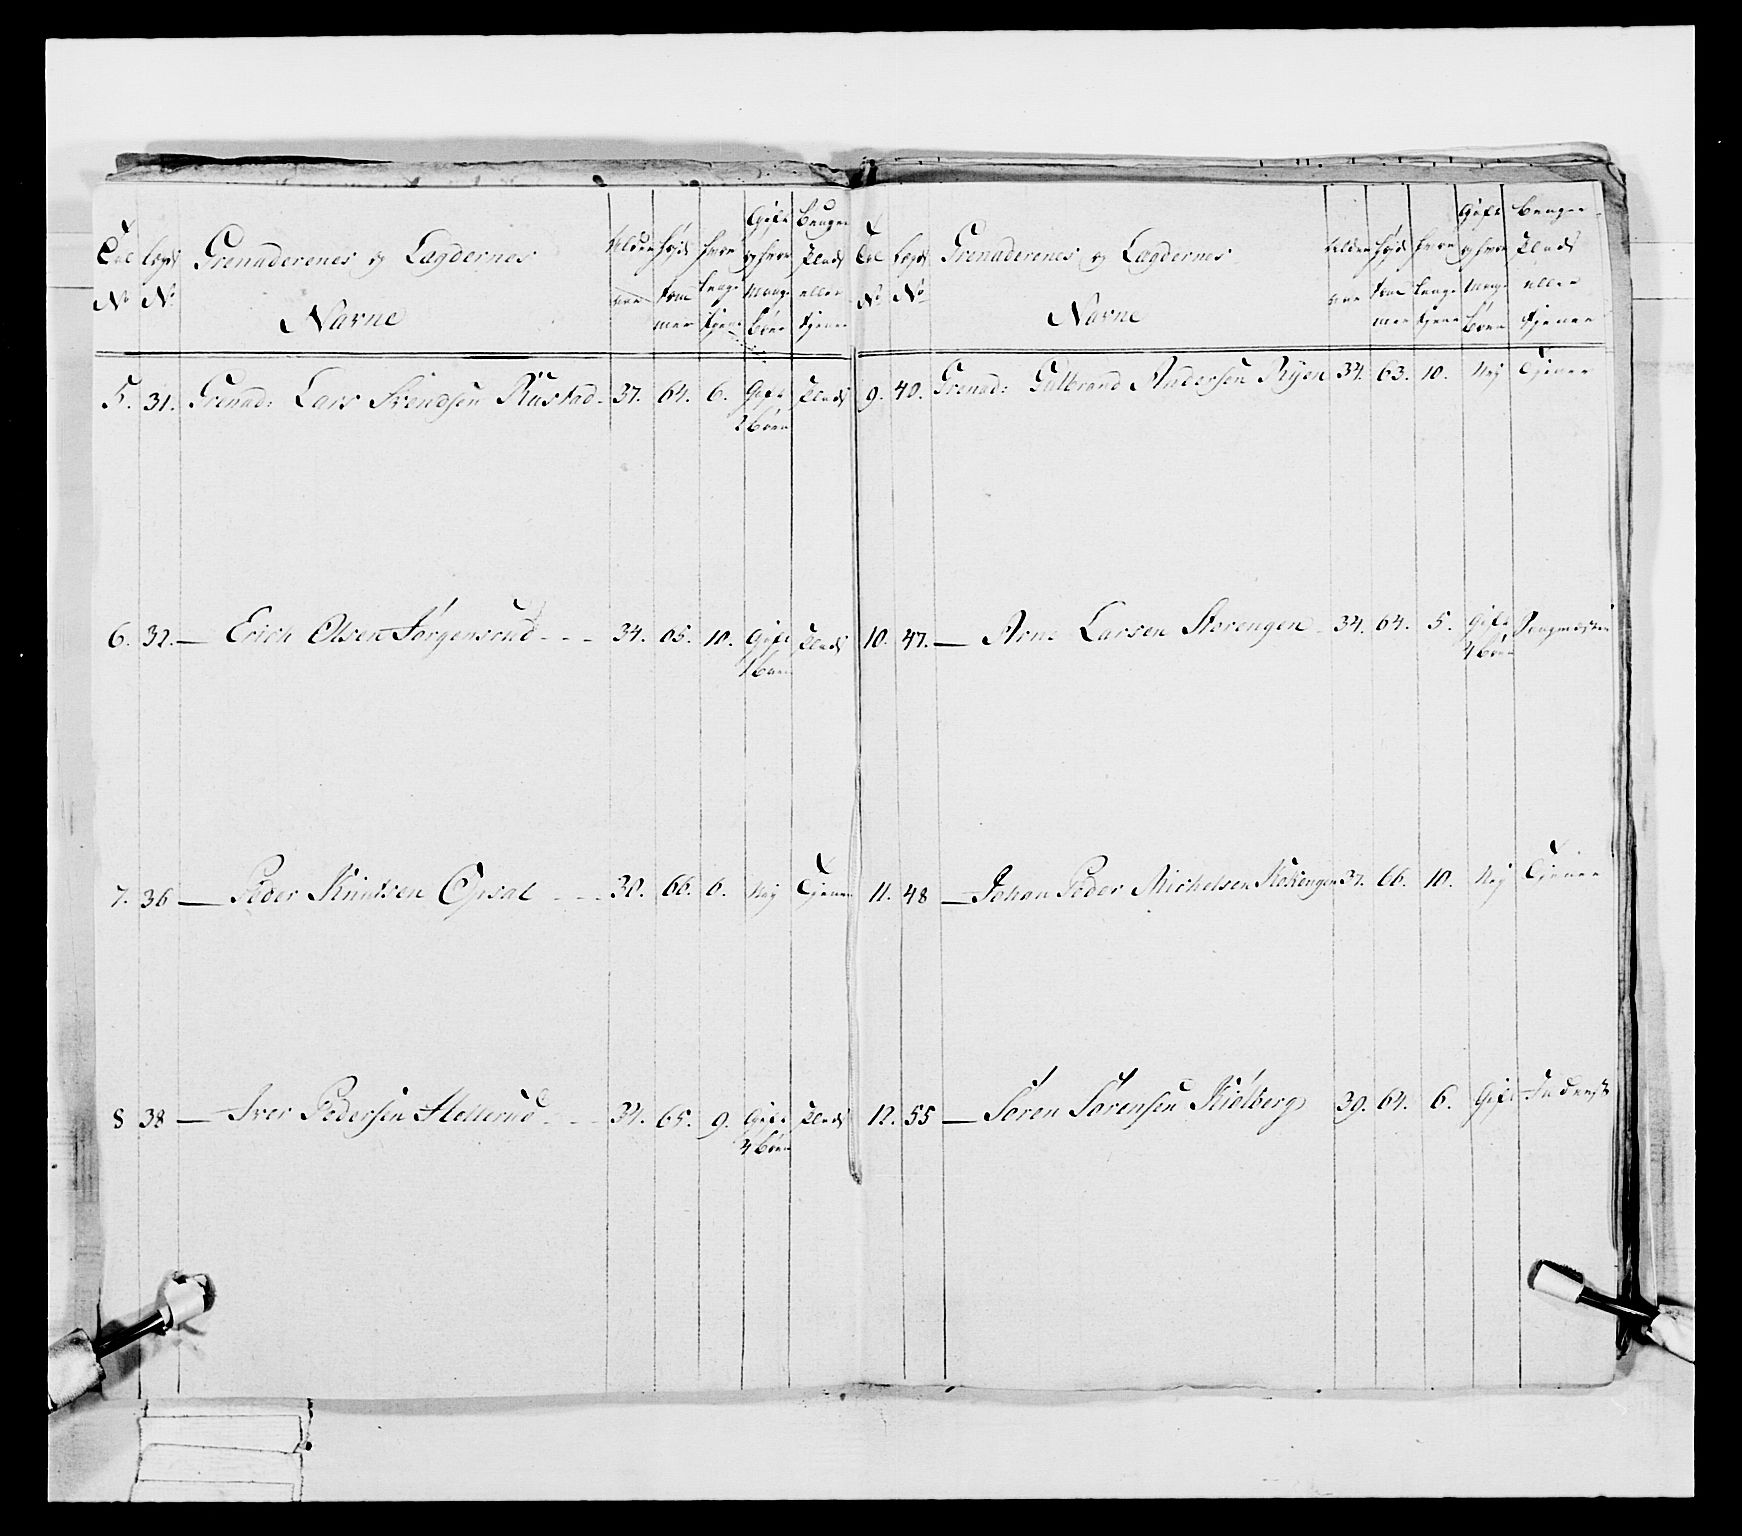 Tal No
Legds No
Grenaderenes og Lægdernes
Navne
Alder
Høyde Tommer
Hvor længe tjent
Gift og hvor mange Børn
Bruger Plads eller tjener
5. 31. Grenad: Lars Svendsen Rustad - 37. 64. 6. Gift 2 børn Plads
6. 32. — Erich Olsen Jørgensrud - - - 34. 65. 10. Gift 1 barn Plads
7. 36 — Peder Knudsen Opsal - - - 30. 66. 6. Nej Tjener
8 38 — Iver Pedersen Hellerud - - - 34. 65. 9. Gift 4 børn Plads
Tal No
Legds No
Grenaderenes og Lægdernes
Navne
Alder
Høyde Tommer
Hvor længe tjent
Gift og hvor mange Børn
Bruger Plads eller tjener
9. 40. Grenad: Gulbrand Andersen Ryen 34. 63. 10. Nej Tjener
10. 47. — Arne Larsen Storengen - 34. 64. 5. Gift 4 børn
11. 48 — Johan Peder Michelsen 37. 66. 10. Nej Tjener
12. 55 — Søren Sørensen Kiølberg 39. 64. 6. Gift Inderst